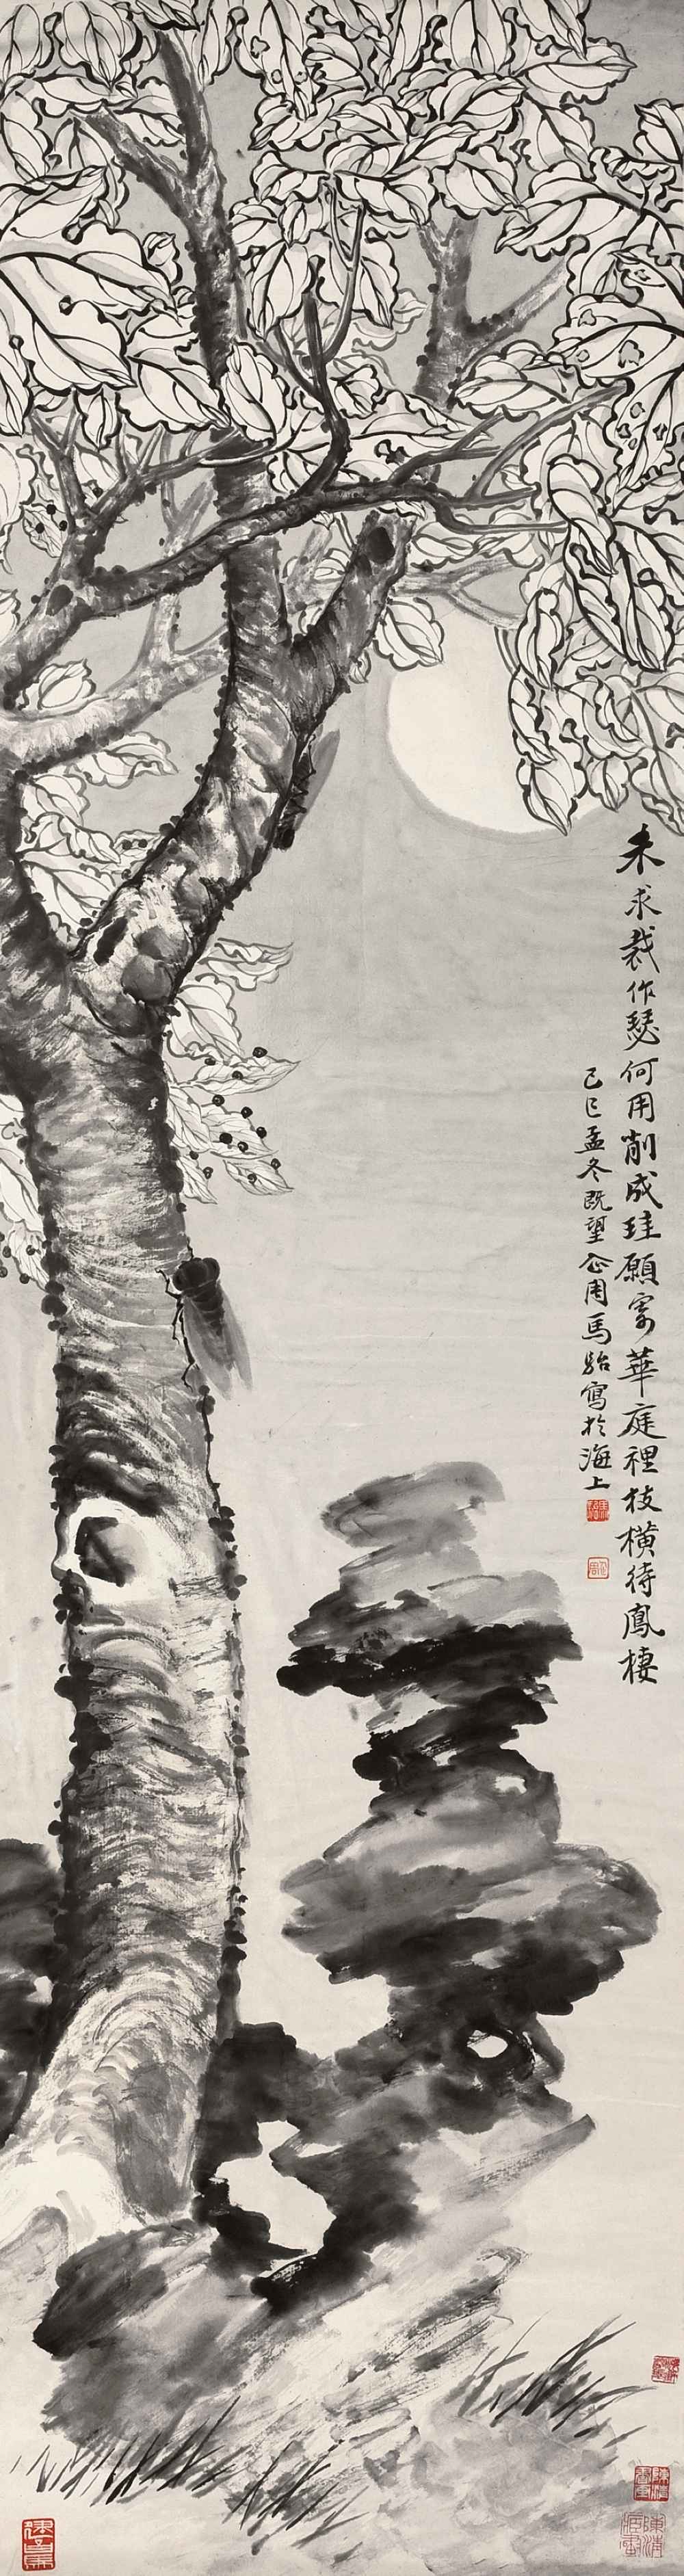 未求裁作瑟何用削成珪願寄華庭裡枝橫待鳳棲
己巳孟冬既望企周馬駘寫於海上